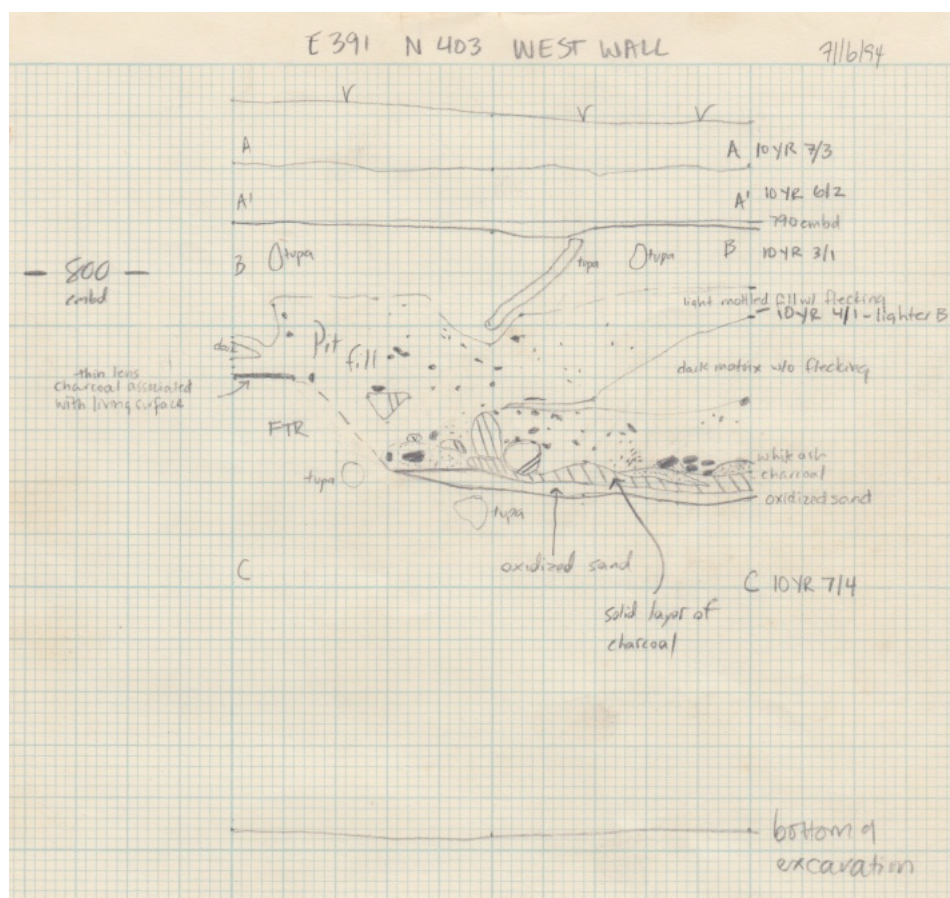 E 391 N 403 WEST WALL
7/16/94
V
V
V
A
A 10 YR 7/3
A'
A' 10 YR 6/2
790 cmbd
B tupa
tupa
tupa
B 10 YR 3/1
- 800 -
cmbd
light mottled fill w/ flecking
10 YR 4/1 - lighter B
dark
Pit
fill
dark matrix w/o flecking
thin lens
charcoal associated
with living surface
FTR
white ash
charcoal
oxidized sand
tupa
tupa
oxidized sand
C
C 10 YR 7/4
solid layer of
charcoal
bottom of
excavation